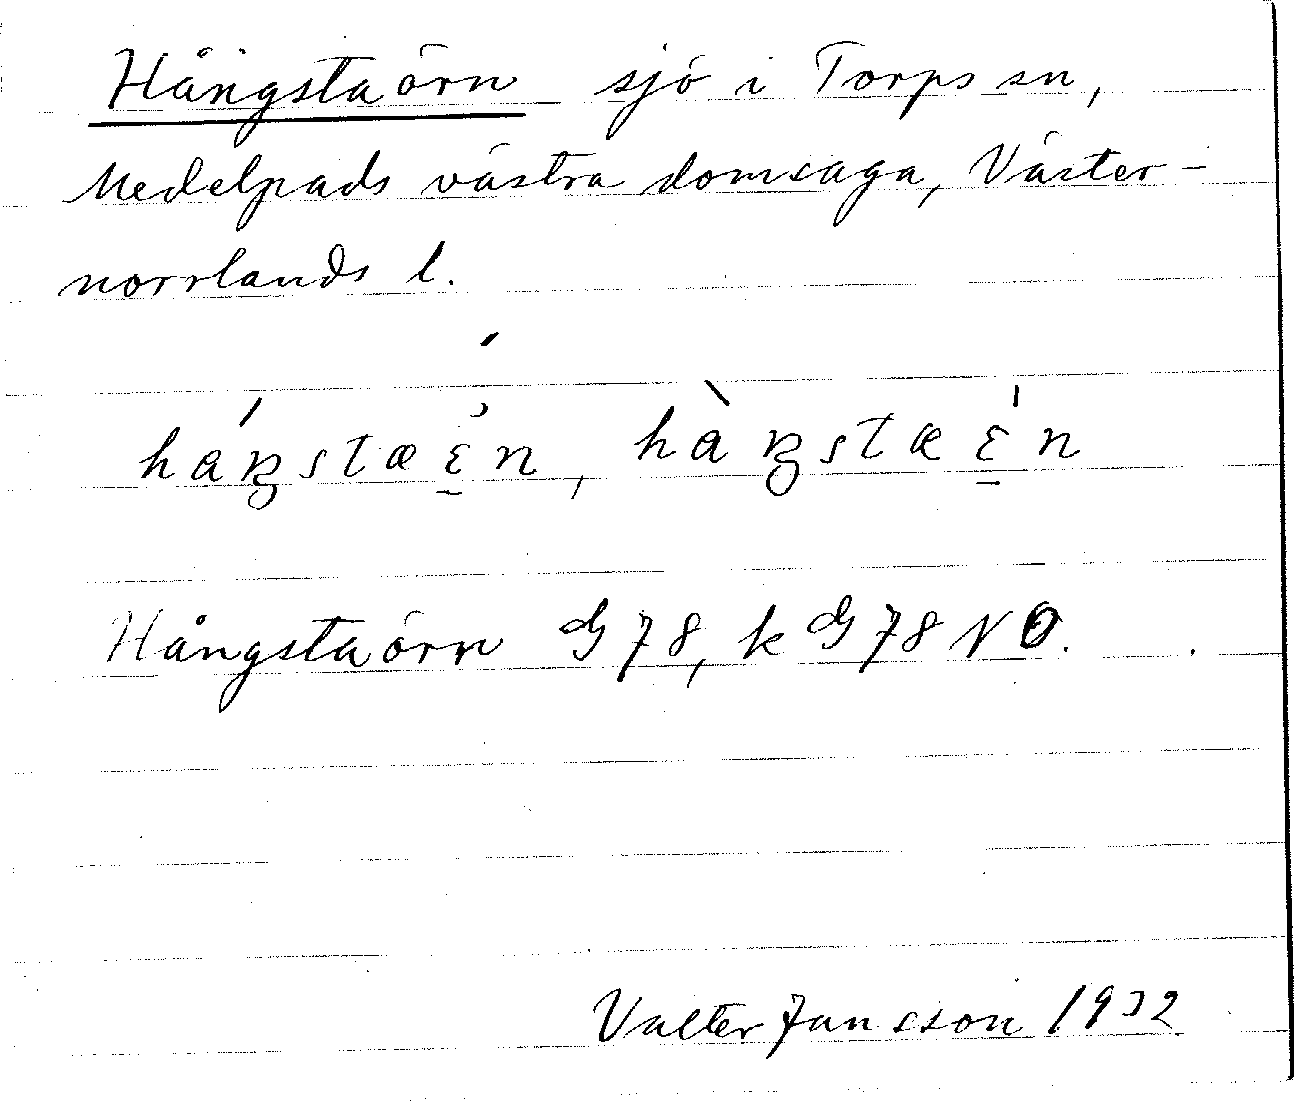 Hångstaörn sjö i Torps sn,
Medelpads västra domsaga, Väster-
norrlands l.
háŋstæɛ̠́n, hàŋstæɛ̠̍n
Hångstaörn G 78, k G 78 NO.
Valter Jansson 1932